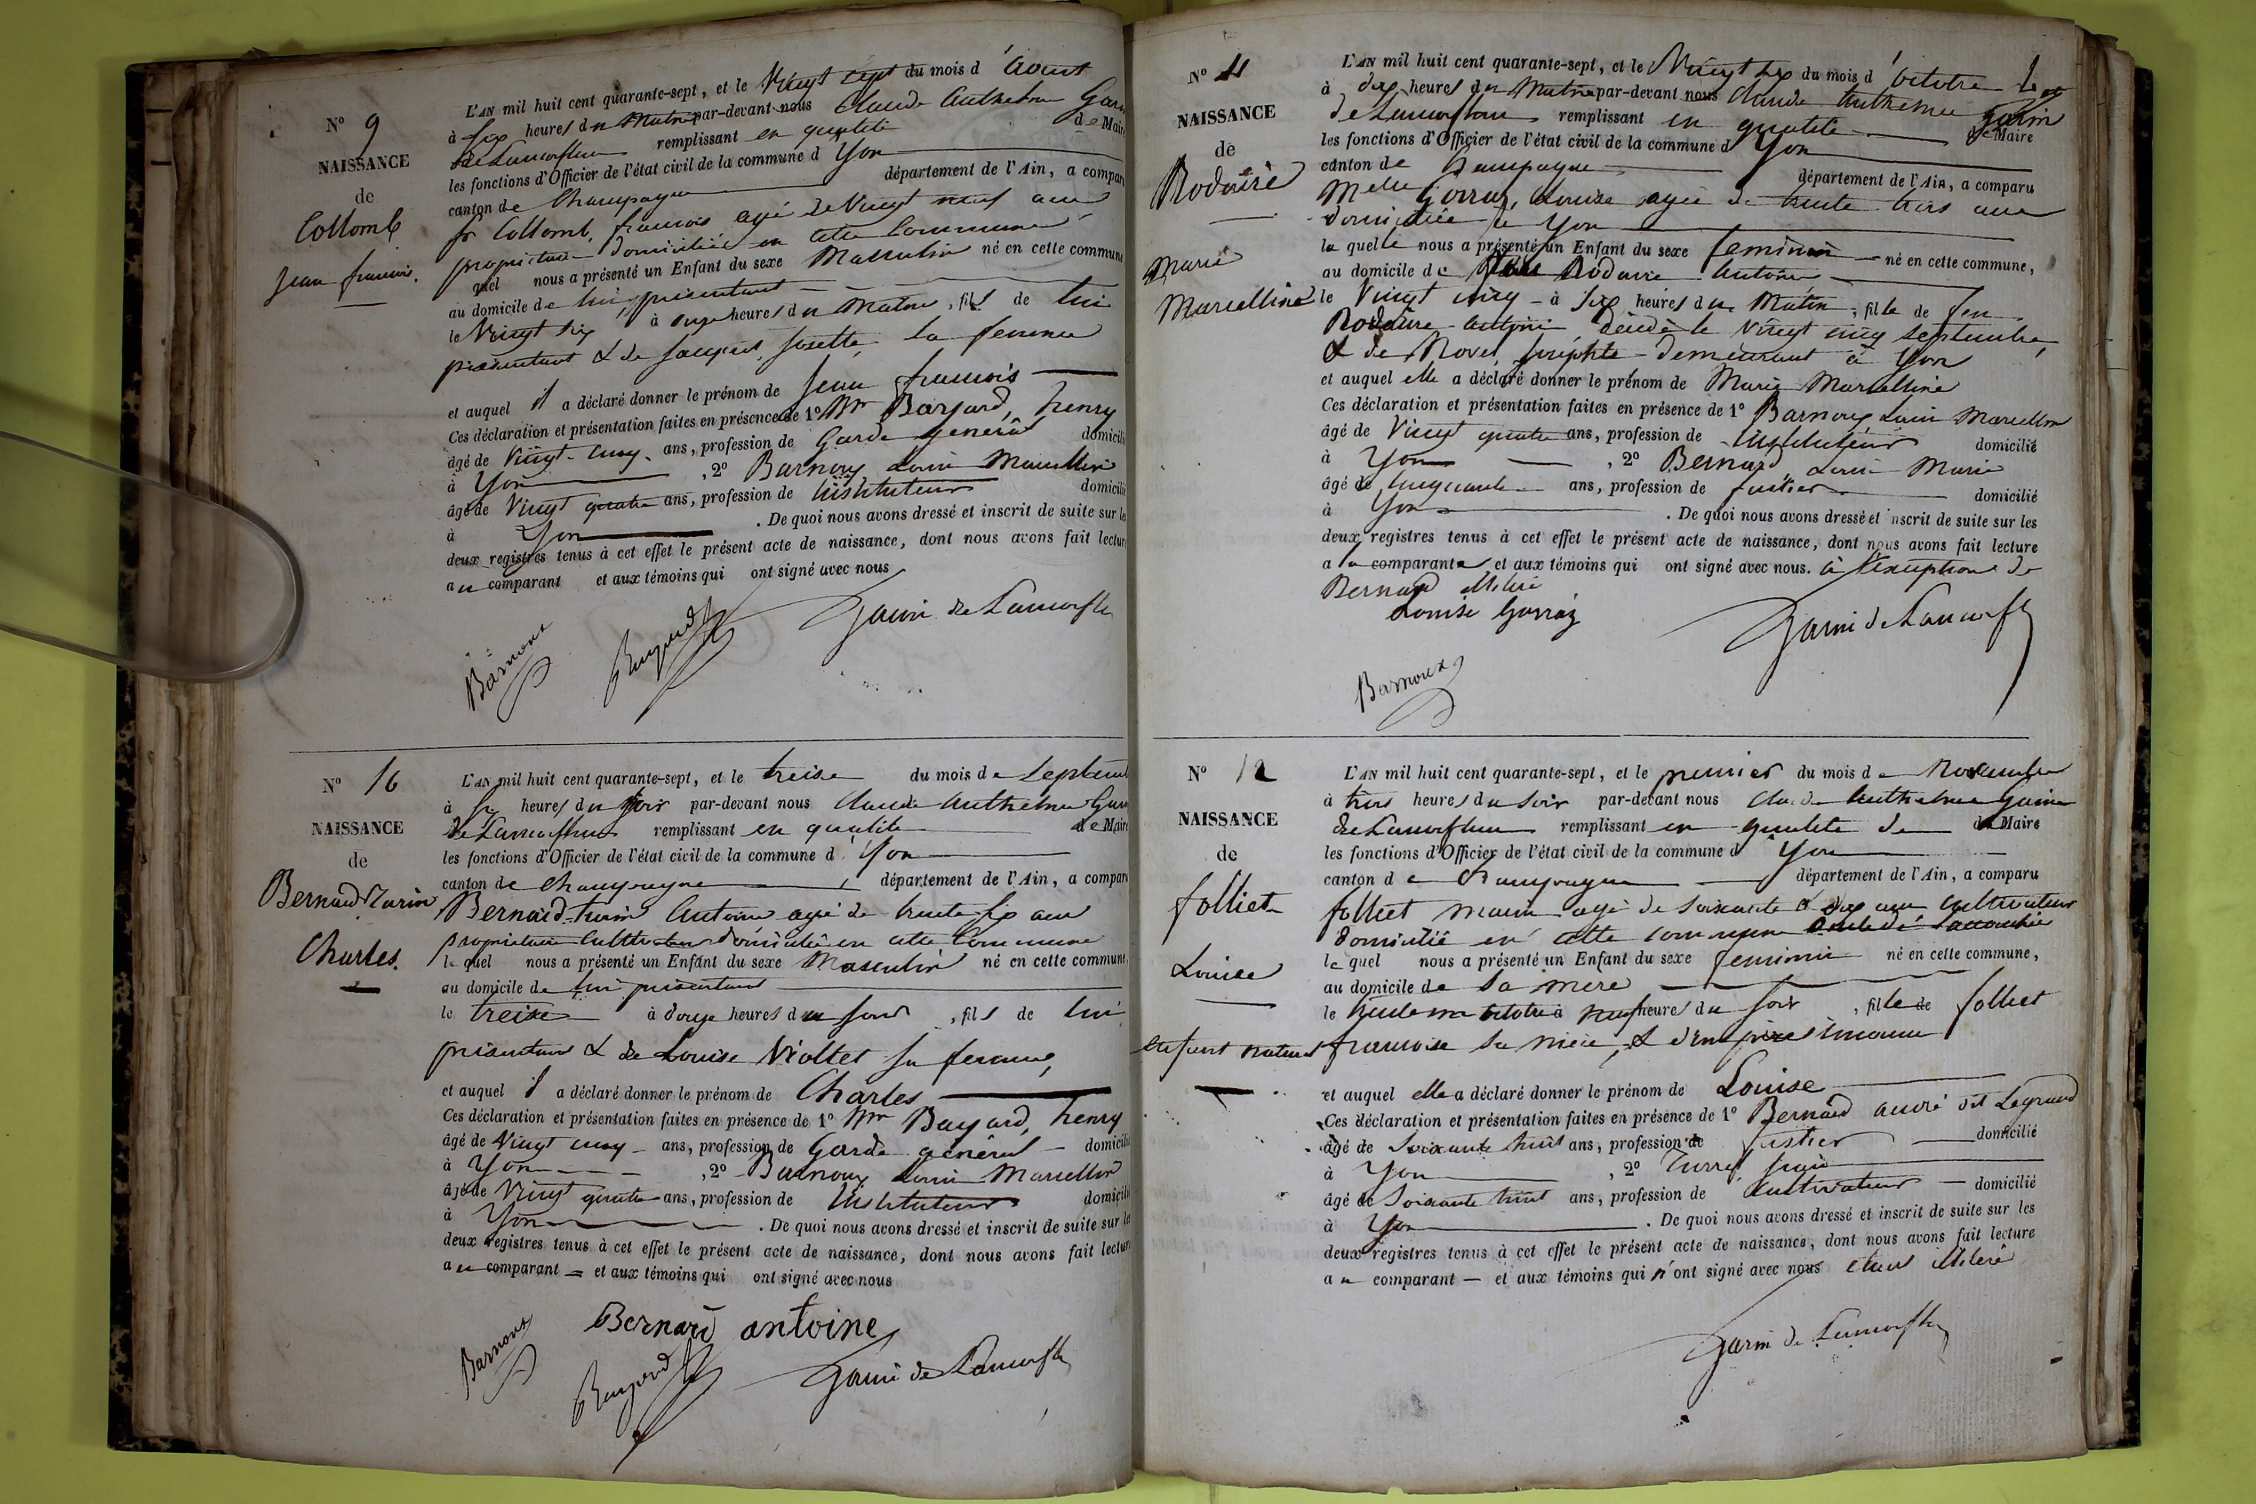 N° 9
NAISSANCE
de
Collomb
Jean françois.
L'AN mil huit cent quarante-sept, et le Vingt sept du mois d'Aout
à six heures du Matin par-devant nous Claude Anthelme Garin
de Lamorflan remplissant en qualité de Maire
les fonctions d'Officier de l'état civil de la commune d Yon
canton de Champagne département de l'Ain, a comparu
Collomb, françois agé de Vingt neuf ans
propriétaire domicilié en cette Commune
quel nous a présenté un Enfant du sexe Masculin né en cette commune
au domicile de lui présentant
le Vingt six à onze heures du Matin, fils de lui
présentant & de Josette sa femme
et auquel il a déclaré donner le prénom de Jean françois
Ces déclaration et présentation faites en présence de 1° Mr Bayard, henry
âgé de Vingt-cinq ans, profession de Garde général domicilié
à Yon, 2° Barnoux Louis Marcellin
âgé de Vingt quatre ans, profession de Instituteur domicilié
à Yon. De quoi nous avons dressé et inscrit de suite sur les
deux registres tenus à cet effet le présent acte de naissance, dont nous avons fait lecture
au comparant et aux témoins qui ont signé avec nous
Barnoux Bayard Garin de Lamorflan
N° 10
NAISSANCE
de
Bernard Turin
Charles.
L'AN mil huit cent quarante-sept, et le treise du mois de Septembre
à six heures du soir par-devant nous Claude Anthelme Garin
de Lamorflan remplissant en qualité de Maire
les fonctions d'Officier de l'état civil de la commune d'Yon
canton de Champagne, département de l'Ain, a comparu
Bernard-turin Antoine agé de trente-six ans
propriétaire Cultivateur domicilié en cette Commune
le quel nous a présenté un Enfant du sexe Masculin né en cette commune,
au domicile de lui présentant
le treise à douze heures du, fils de lui
présentant & de Louise Viollet sa femme,
et auquel il a déclaré donner le prénom de Charles
Ces déclaration et présentation faites en présence de 1° Mr Bayard, henry
âgé de Vingt cinq ans, profession de Garde général domicilié
à Yon, 2° Barnoux Louis Marcellin
âgé de Vingt quatre ans, profession de Instituteur domicilié
à Yon. De quoi nous avons dressé et inscrit de suite sur les
deux registres tenus à cet effet le présent acte de naissance, dont nous avons fait lecture
au comparant et aux témoins qui ont signé avec nous
Bernard antoine
Barnoux Bayard Garin de Lamorflan
N° 11
NAISSANCE
de
Rodaire
Marie
Marcelline
L'AN mil huit cent quarante-sept, et le Vingt six du mois d'octobre
à dix heures du Matin par-devant nous Claude Anthelme Garin
de Lamorflan remplissant en qualité de Maire
les fonctions d'Officier de l'état civil de la commune d Yon
canton de Champagne département de l'Ain, a comparu
Melle Gorraz, Louise agée de trente trois ans
domiciliée à Yon
la quelle nous a présenté un Enfant du sexe feminin né en cette commune,
au domicile de Rodaire Antoine
le Vingt cinq à six heures du Matin, fille de feu
Rodaire Antoine décédé le vingt cinq septembre,
& de Morel Josephte demeurant à Yon
et auquel elle a déclaré donner le prénom de Marie Marcelline
Ces déclaration et présentation faites en présence de 1° Barnoux Louis Marcellin
âgé de Vingt quatre ans, profession de instituteur domicilié
à Yon, 2° Bernard Louis Marie
âgé de cinquante ans, profession de justier domicilié
à Yon. De quoi nous avons dressé et inscrit de suite sur les
deux registres tenus à cet effet le présent acte de naissance, dont nous avons fait lecture
a la comparante et aux témoins qui ont signé avec nous. à l'exception de
Bernard illitéré
Louise Gorraz
Barnoux Garin de Lamorflan
N° 12
NAISSANCE
de
folliet
Louise
enfant naturel
L'AN mil huit cent quarante-sept, et le premier du mois de Novembre
à trois heures du soir par-devant nous Claude Anthelme Garin
de Lamorflan remplissant en qualité de de Maire
les fonctions d'Officier de l'état civil de la commune d Yon
canton de Champagne département de l'Ain, a comparu
folliet agé de soixante & dix ans cultivateur
domicilié en cette commune
le quel nous a présenté un Enfant du sexe feminin né en cette commune,
au domicile de sa mère
le trente un octobre à neuf heures du soir, fille de folliet
françoise sa mère, & d'un père inconnu
et auquel elle a déclaré donner le prénom de Louise
Ces déclaration et présentation faites en présence de 1° Bernard André dit Legrand
âgé de soixante huit ans, profession de justier domicilié
à Yon, 2°
âgé de soixante huit ans, profession de Cultivateur domicilié
à Yon. De quoi nous avons dressé et inscrit de suite sur les
deux registres tenus à cet effet le présent acte de naissance, dont nous avons fait lecture
au comparant et aux témoins qui n'ont signé avec nous illiteré
Garin de Lamorflan